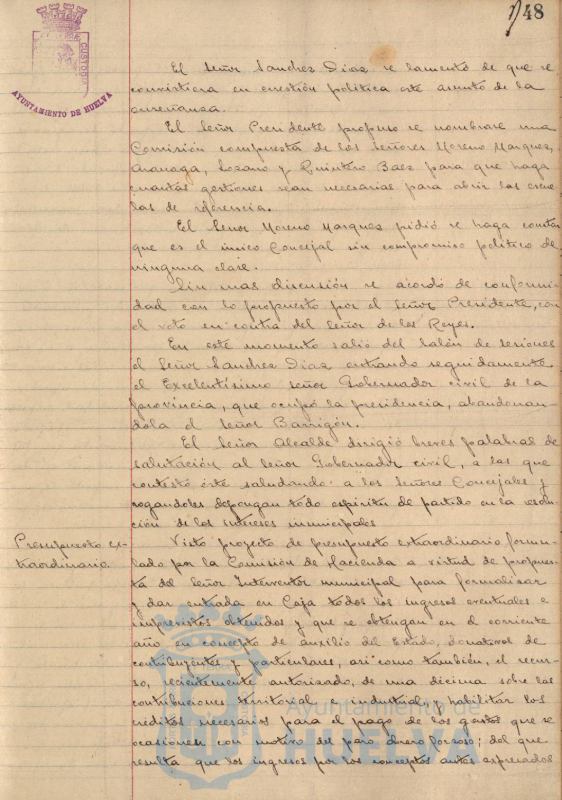 48
CUSTODIO
AYUNTAMIENTO DE HUELVA
El Señor Sanchez Diaz se lamentó de que se
convirtiera en cuestión política este asunto de la
enseñanza.
El Señor Presidente propuso se nombrase una
Comisión compuesta de los Señores Moreno Marquez,
Lozano y Quintero Baez para que haga
cuantas gestiones sean necesarias para abrir las escue
las de referencia.
El Señor Moreno Marquez pidió se haga constar
que es el único Concejal sin compromiso político de
ninguna clase.
Sin mas discusión se acordó de conformi
dad con lo propuesto por el Señor Presidente, con
el voto en contra del Señor de los Reyes.
En este momento salió del Salón de sesiones
el Señor Sanchez Diaz entrando seguidamente
el Excelentísimo señor Gobernador civil de la
provincia, que ocupó la presidencia, abandonan-
dola el señor Barrigón.
El Señor Alcalde dirigió breves palabras de
salutación al señor Gobernador civil, a las que
contestó éste saludando a los Señores Concejales y
rogandoles depongan todo espíritu de partido en la
de los intereses municipales
Presupuesto ex-
traordinario.
Visto proyecto de presupuesto extraordinario formu-
lado por la Comisión de Hacienda a virtud de propues
ta del Señor Interventor municipal para formalizar
y dar entrada en Caja todos los ingresos eventuales e
imprevistos obtenidos y que se obtengan en el corriente
año en concepto de auxilio del Estado, donativos de
contribuyentes y particulares, asi como también, el recur-
so, recientemente autorizado, de una décima sobre las
contribuciones territorial e industrial, y habilitar los
créditos necesarios para el pago de los gastos que se
ocasionen con motivo del paro obrero forzoso; del que
resulta que los ingresos por los conceptos antes expresados
Ayuntamiento de
HUELVA